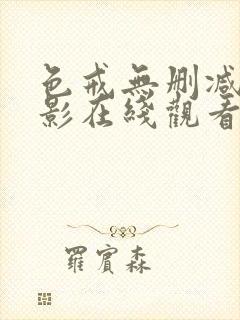 色戒無刪減
影在綫觀看
羅賓森